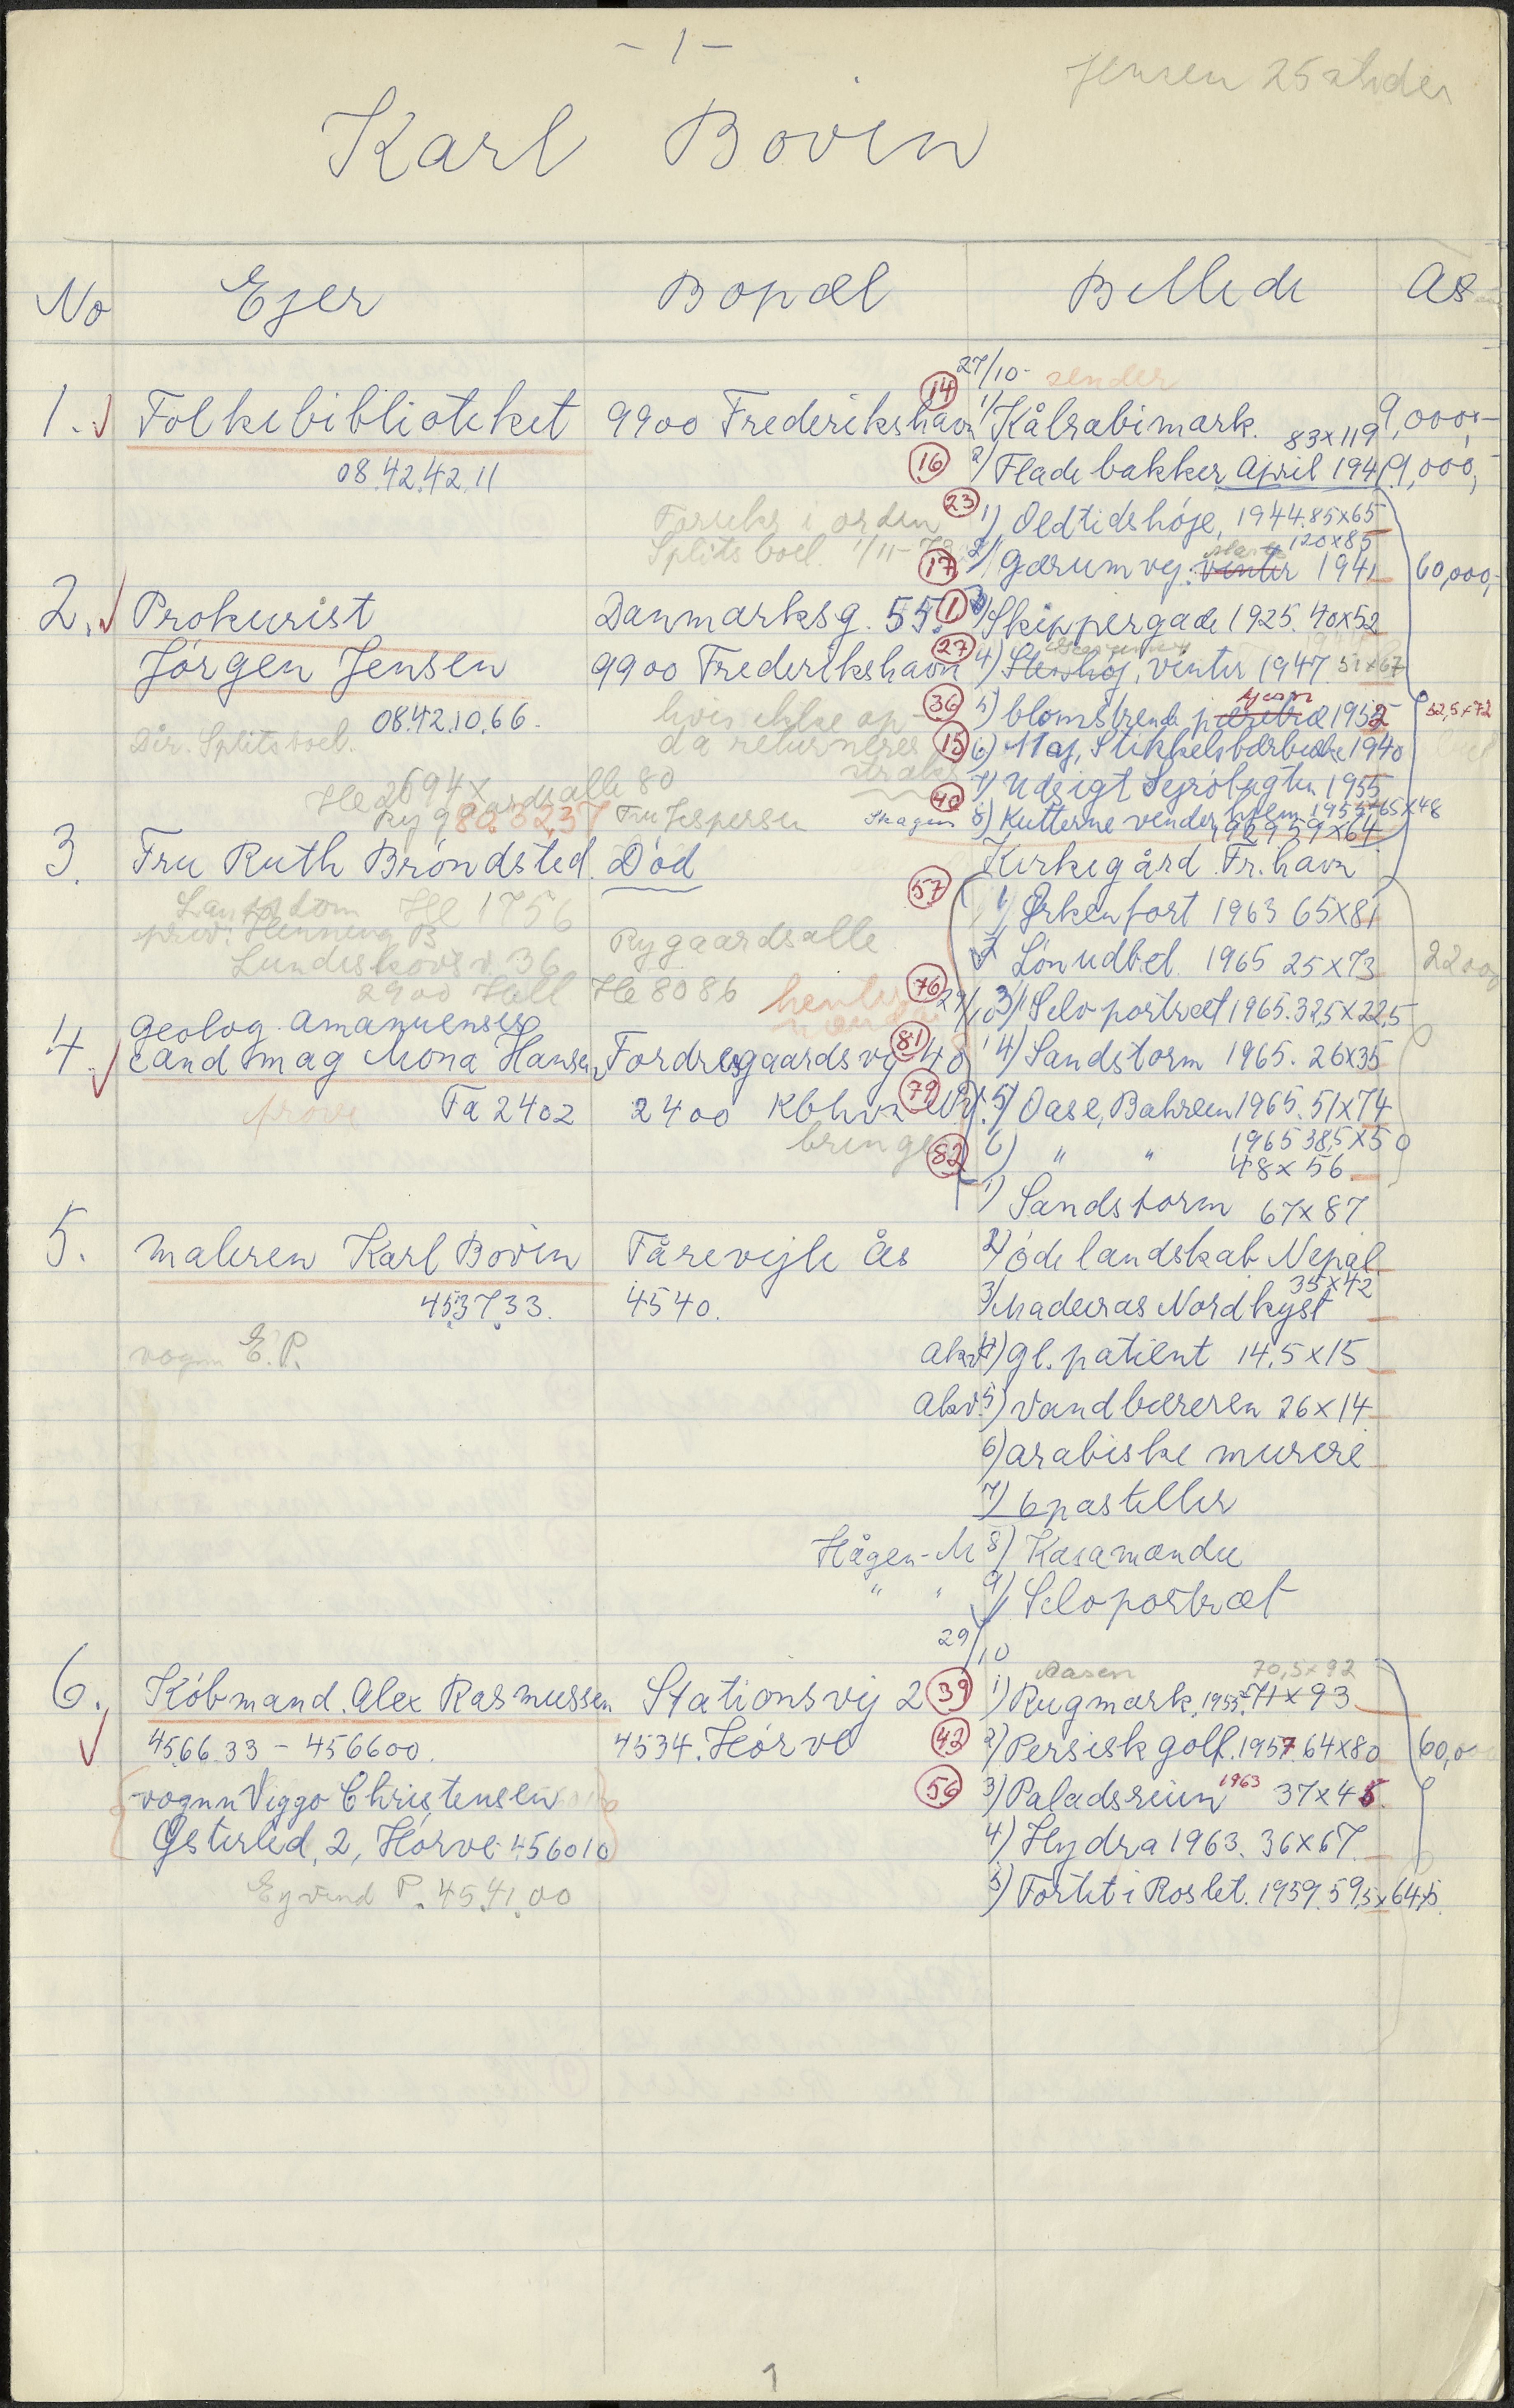 - 1 -
Jensen 25
Karl Bovin
No Ejer Bopæl Billede As
27/10- sender
1. Folkebiblioteket 9900 Frederikshavn (14) 1) Kålrabimark. 83x119 9,000,-
08.42.42.11 (16) 2) Flade bakker, April 1941 9,000,-
i orden (23) 1) Oldtidshøje, 1944. 85x65
Splitsboel. 1/11-78 (17) 2) Gærumvej. vinter 1941 120x85 60,000,-
2. Prokurist Danmarksg. 55. (1) 3) Skippergade 1925. 40x52
Jørgen Jensen 9900 Frederikshavn (27) 4) Stenhøj, vinter 1947. 51x67
08.42.10.66. hvis ikke op- (36) 5) blomstrende pæretræ 1952 52,5x72
Dir. Splitsboel. da returneres (15) 6) Maj, Stikkelsbærbuske 1940
straks 7) Udsigt Sejrøbugten 1955
He 2694x alle 80
Ry 9 Fru Jespersen Skagen (40) 8) Kutterne vender hjem 1955 65x48
59x64
3. Fru Ruth Brøndsted. Død Kirkegård Fr.havn
He 1756 (57) 1) Ørkenfort 1963 65x81
priv: Henning B
Lundeskovsv. 36 Rygaardsalle 2) Løn udbet. 1965 25x73 2200
2900 Hell He 8086 henter (76) 29/10 3) Selvportræt 1965. 32,5x22,5
Geolog amanuensis
4. cand mag Mona Hansen, Fordresgaardsvej 48 (81) 4) Sandstorm 1965. 26x35
prøve Fa 2402 2400 Kbhvn NV. (79) 5) Oase, Bahrein 1965. 51x74
bringe (82) 6) " " 1965 38,5x50
48x56
1) Sandstorm 67x87
5. Maleren Karl Bovin Fårevejle Ås 2) øde landskab Nepal
35x42
453733. 4540. 3) Madeiras Nordkyst
vogn E.P. akv. 4) gl. patient 14,5x15
akv. 5) vandbæreren 26x14
6) arabiske murere
7) 6 pasteller
Hågen-M 8) Kasamandu
" " 9) Selvportræt
29/10
Aasen 70,5x92
6. Købmand. Alex Rasmussen Stationsvej 2 (39) 1) Rugmark, 1955. 71x93
456633 - 456600. 4534. Hørve (42) 2) Persisk golf. 1957 64x80 60,0
vognn Viggo Christensen (56) 3) Paladsruin 1963 37x45
Østerled, 2, Hørve 456010 4) Hydra 1963. 36x67.
Eyvind P. 45.41.00 5) Fortet i Roslet. 1959. 59,5x64,5
1